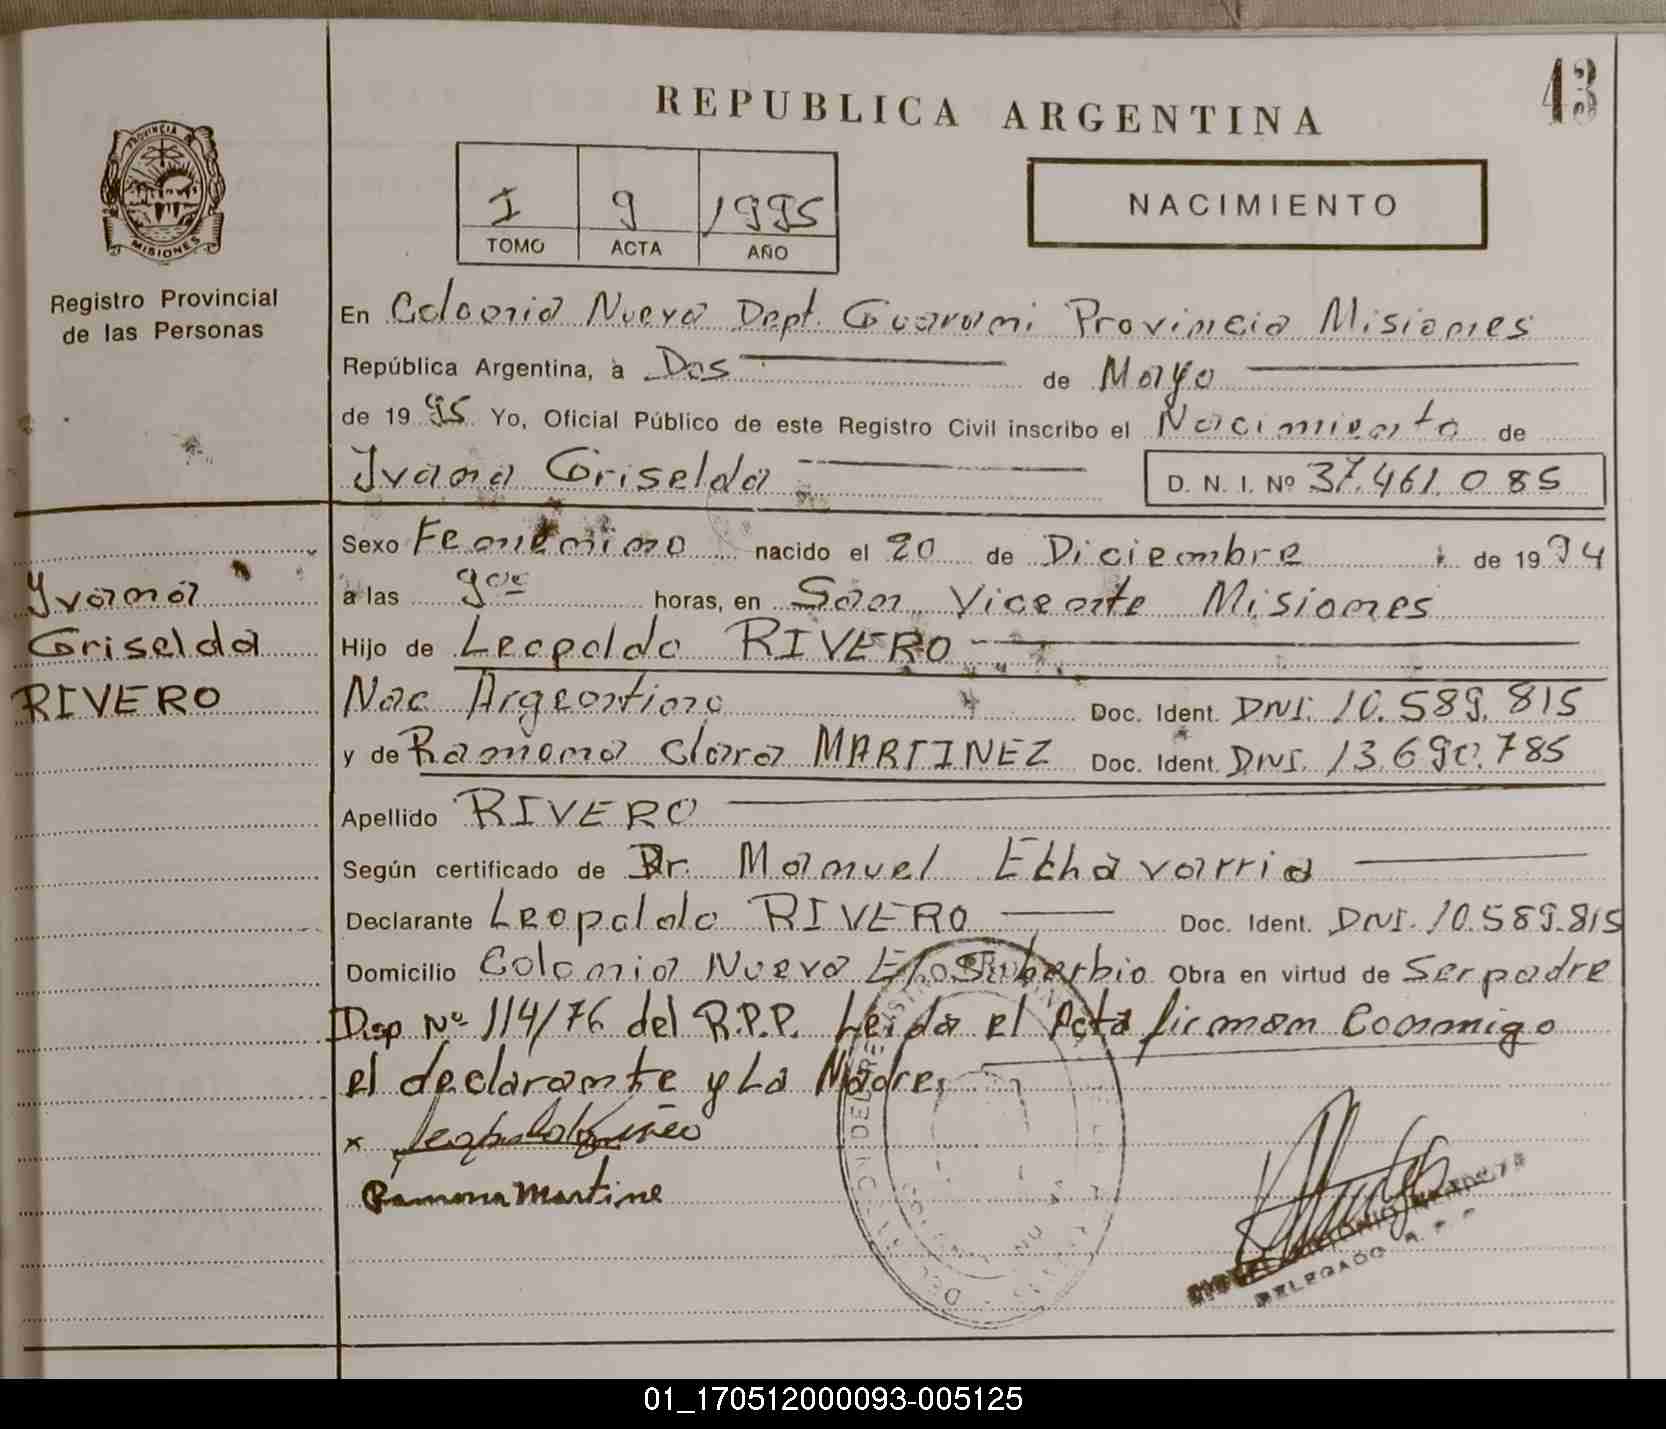 43
REPUBLICA ARGENTINA
PROVINCIA DE
MISIONES
Registro Provincial
de las Personas
I 9 1995
TOMO ACTA AÑO
NACIMIENTO
En Colonia Nueva Dept. Guarani Provincia Misiones
República Argentina, a Dos de Mayo
de 1995 Yo, Oficial Público de este Registro Civil inscribo el Nacimiento de
Ivana Griselda D. N. I. Nº 37.461.085
Sexo Femenino nacido el 20 de Diciembre de 1994
a las 9 horas, en San Vicente Misiones
Hijo de Leopoldo RIVERO
Nac Argentino Doc. Ident. DNI. 10.589.815
y de Ramona Clara MARTINEZ Doc. Ident. DNI. 13.690.785
Apellido RIVERO
Según certificado de Dr. Manuel Echavarria
Declarante Leopoldo RIVERO Doc. Ident. DNI. 10.589.815
Domicilio Colonia Nueva Obra en virtud de Ser padre
Disp Nº 114/76 del R.P.P. Leida el Acta firman Conmigo
el declarante y La Madre,
Ramona Martine
Ivana
Griselda
RIVERO
DELEGADO R. P. P.
01_170512000093-005125